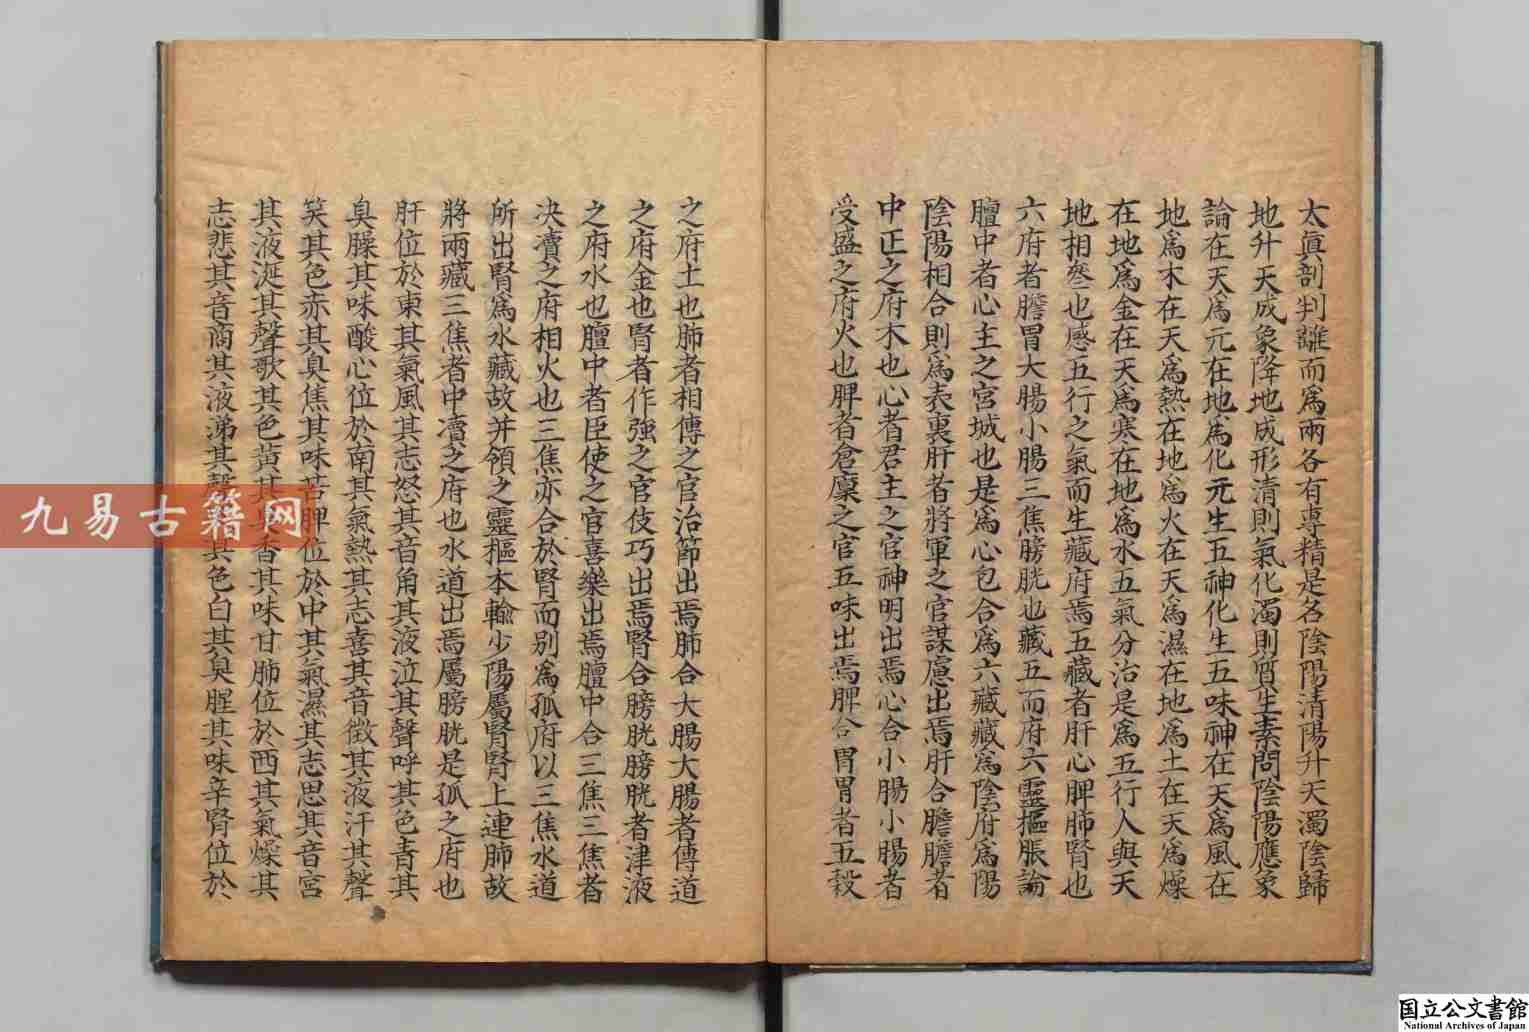 太眞剖判離而爲兩各有專精是名陰陽清陽升天濁陰歸
地升天成象降地成形清則氣化濁則質生素問陰陽應象
論在天爲元在地爲化元生五神化生五味神在天爲風在
地爲木在天爲熱在地爲火在天爲濕在地爲土在天爲燥
在地爲金在天爲寒在地爲水五氣分治是爲五行人與天
地相叅也感五行之氣而生藏府焉五藏者肝心脾肺腎也
六府者膽胃大腸小腸三焦膀胱也藏五而府六靈樞脹論
膻中者心主之宮城也是爲心包合爲六藏藏爲陰府爲陽
陰陽相合則爲表裏肝者將軍之官謀慮出焉肝合膽膽者
中正之府木也心者君主之官神明出焉心合小腸小腸者
受盛之府火也脾者倉廩之官五味出焉脾合胃胃者五穀
之府土也肺者相傳之官治節出焉肺合大腸大腸者傳道
之府金也腎者作強之官伎巧出焉腎合膀胱膀胱者津液
之府水也膻中者臣使之官喜樂出焉膻中合三焦三焦者
决瀆之府相火也三焦亦合於腎而别爲孤府以三焦水道
所出腎爲水藏故并領之靈樞本輸少陽屬腎腎上連肺故
將兩藏三焦者中瀆之府也水道出焉屬膀胱是孤之府也
肝位於東其氣風其志怒其音角其液泣其聲呼其色青其
臭臊其味酸心位於南其氣熱其志喜其音徵其液汗其聲
笑其色赤其臭焦其味苦脾位於中其氣濕其志思其音宮
其液涎其聲歌其色黃其臭香其味甘肺位於西其氣燥其
志悲其音商其液涕其聲其色白其臭腥其味辛腎位於
九易古籍网
国立公文書館
National Archives of Japan